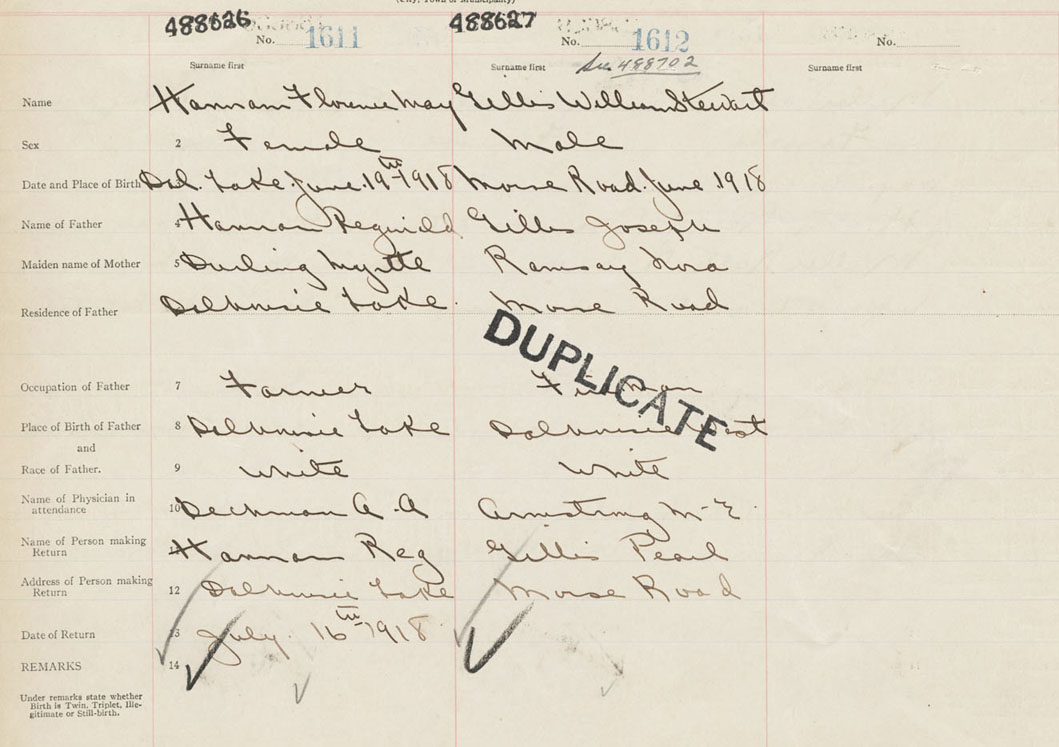 (City, Town or Municipality)
488626 488627
No. 1611 No. 1612 No.
Surname first Surname first See 488702 Surname first
Name Hannam Florence May Gillis William Stewart
Sex 2 Female Male
Date and Place of Birth Dal. Lake. June. 19th 1918 Morse Road. June 1918
Name of Father 4 Hannam Reginald Gillis Joseph
Maiden name of Mother 5 Durling Myrtle Ramsay Nora
Residence of Father Dalhousie Lake. Morse Road
DUPLICATE
Occupation of Father 7 Farmer
Place of Birth of Father 8 Dalhousie Lake Dalhousie West
and
Race of Father. 9 White White
Name of Physician in
attendance 10 Dechman A. A Armstrong M-E
Name of Person making
Return 11 Hannam Reg Gillis Pearl
Address of Person making
Return 12 Dalhousie Lake Morse Road
Date of Return 13 July. 16th 1918
REMARKS 14
Under remarks state whether
Birth is Twin, Triplet, Ille-
gitimate or Still-birth.